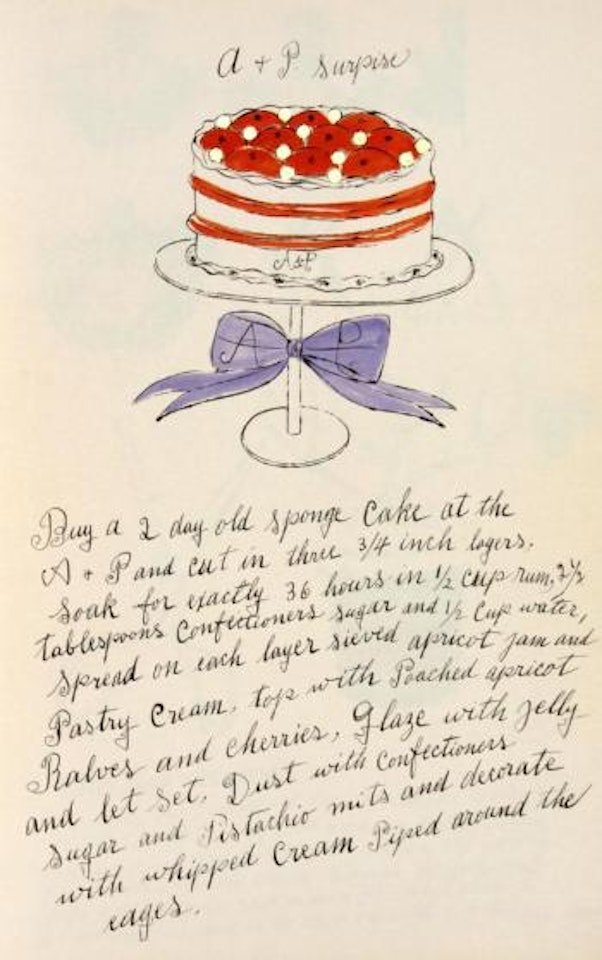 A + P surpise
A & P
A P
Buy a 2 day old sponge cake at the
A + P and cut in three 3/4 inch layers.
Soak for exactly 36 hours in 1/2 cup rum, 2 1/2
tablespoons Confectioners sugar and 1/2 Cup water,
Spread on each layer sieved apricot jam and
Pastry Cream. top with Poached apricot
Halves and cherries, Glaze with jelly
and let set. Dust with confectioners
sugar and Pistachio nuts and decorate
with whipped Cream Piped around the
edges.